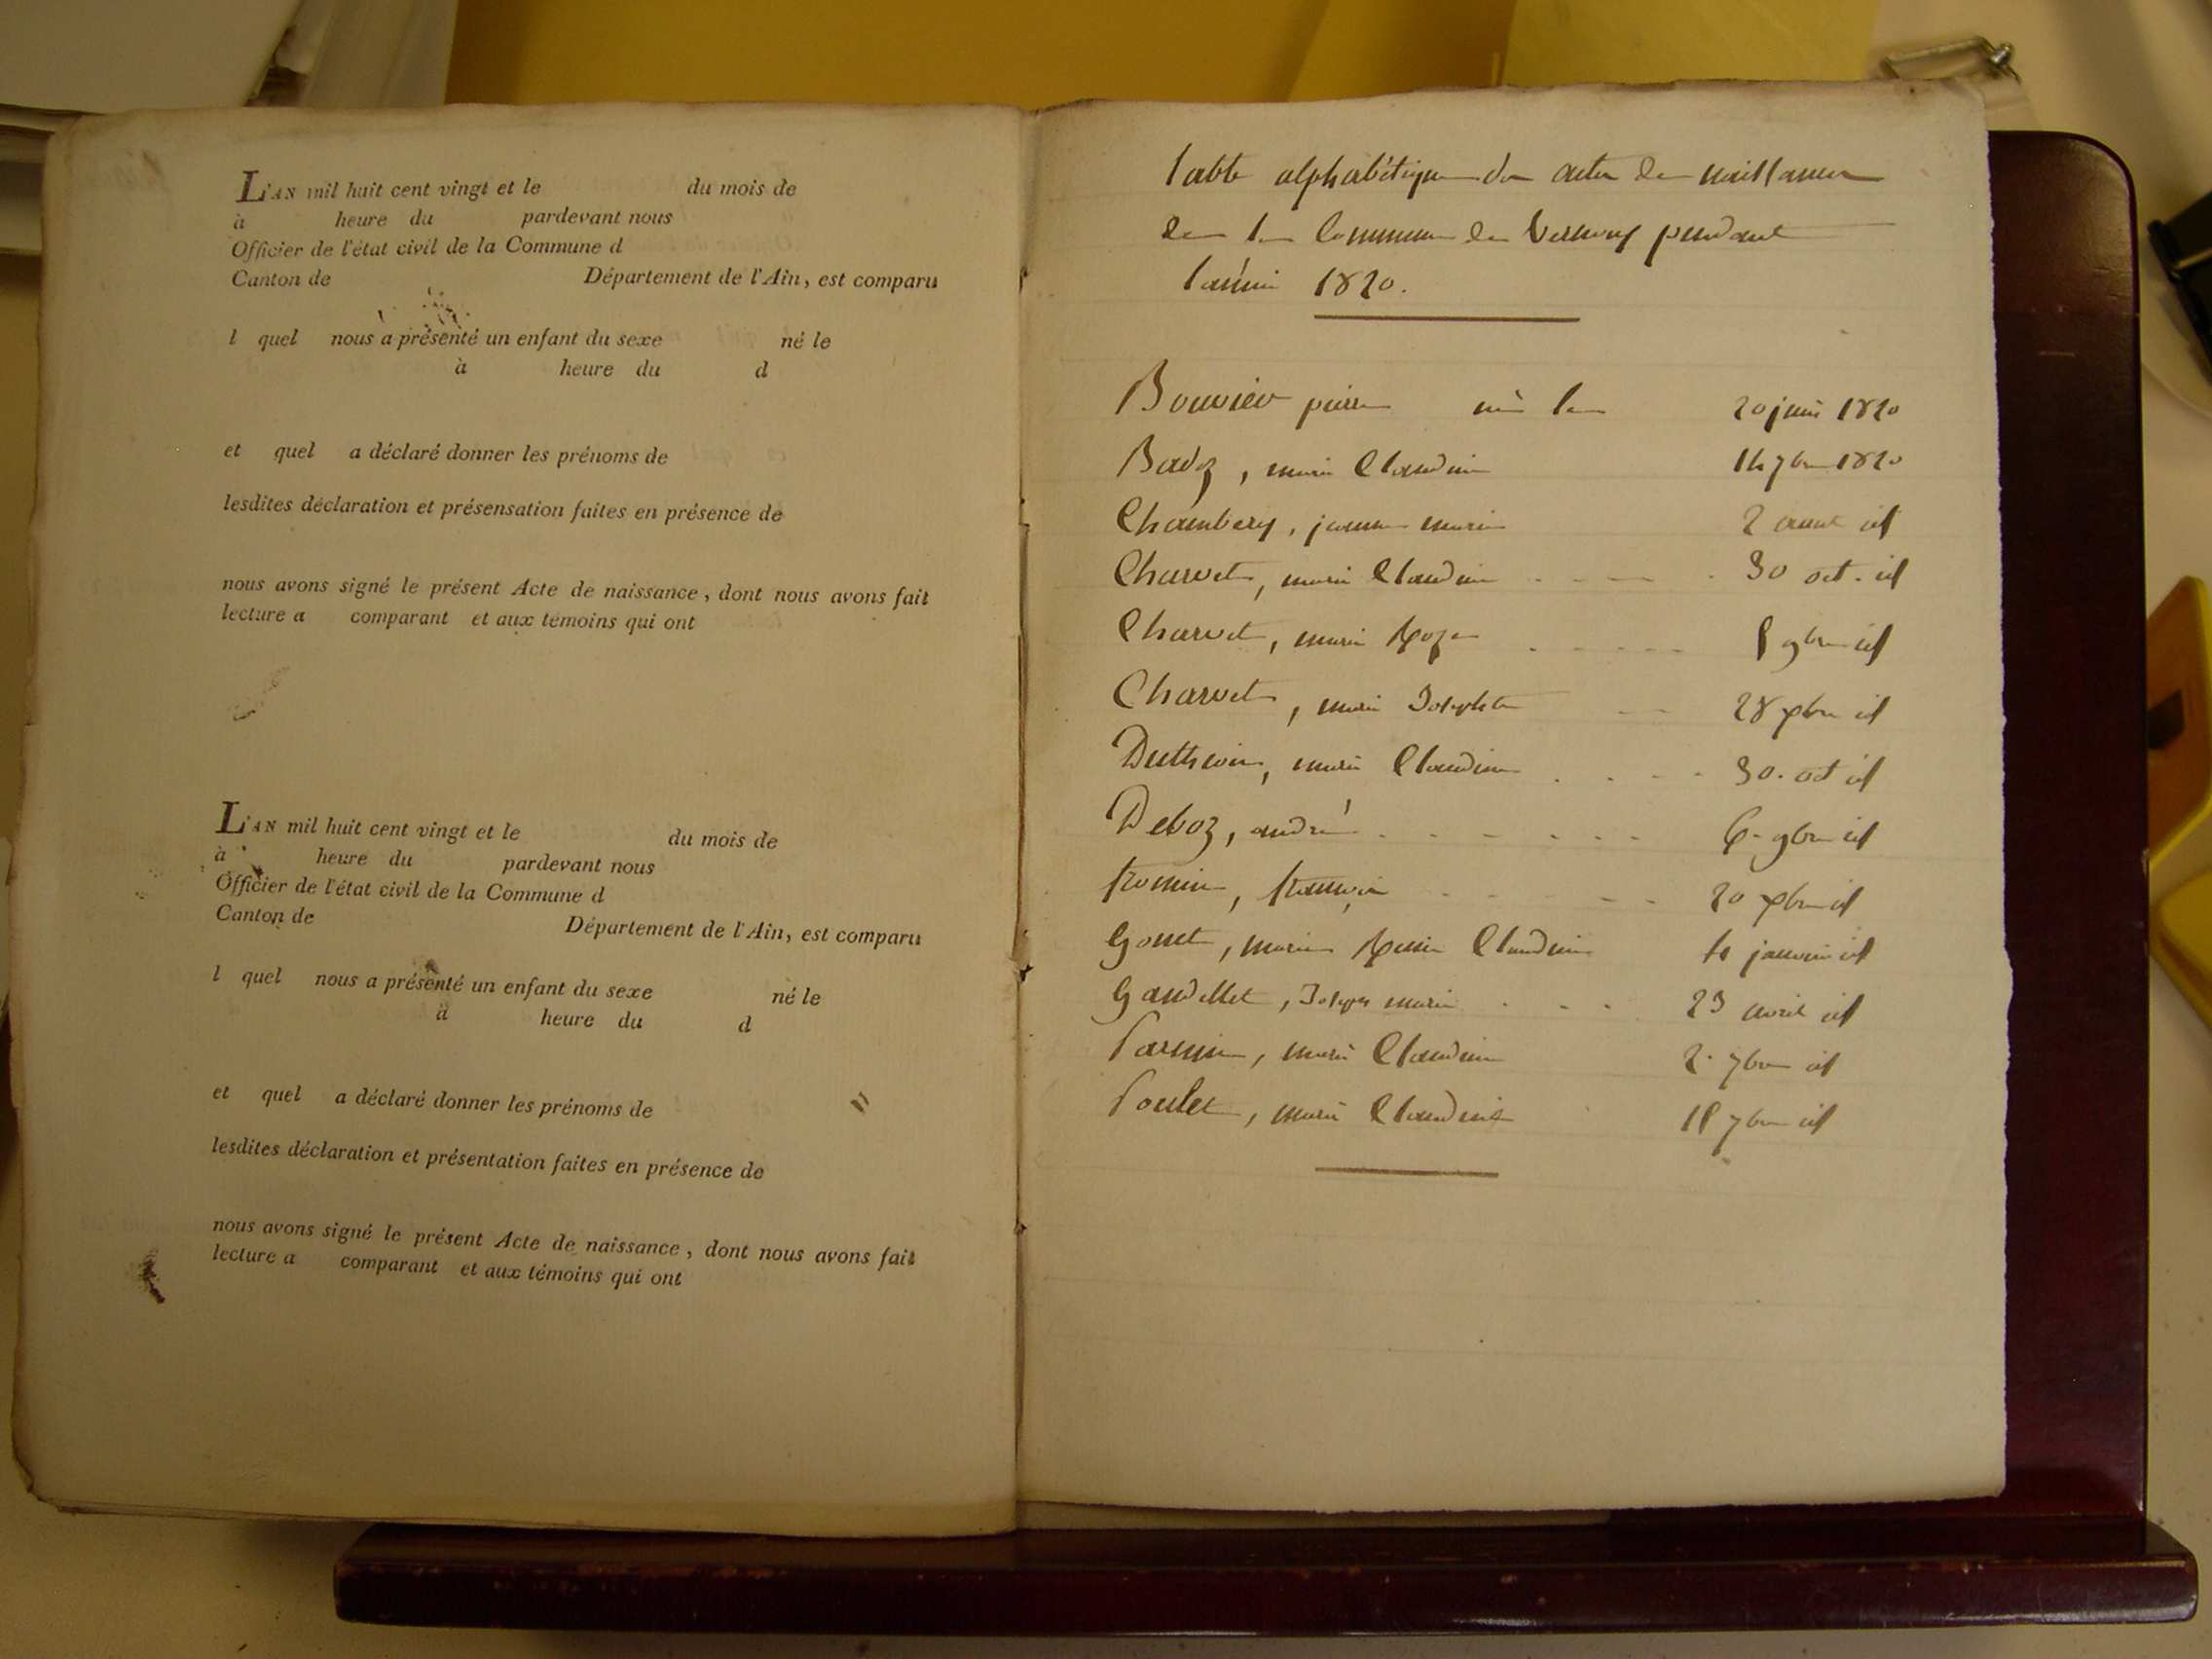 L'AN mil huit cent vingt et le du mois de
à heure du pardevant nous
Officier de l'état civil de la Commune d
Canton de Département de l'Ain, est comparu
l quel nous a présenté un enfant du sexe né le
à heure du d
et quel a déclaré donner les prénoms de
lesdites déclaration et présensation faites en présence de
nous avons signé le présent Acte de naissance, dont nous avons fait
lecture a comparant et aux témoins qui ont
L'AN mil huit cent vingt et le du mois de
à heure du pardevant nous
Officier de l'état civil de la Commune d
Canton de Département de l'Ain, est comparu
l quel nous a présenté un enfant du sexe né le
à heure du d
et quel a déclaré donner les prénoms de
lesdites déclaration et présentation faites en présence de
nous avons signé le présent Acte de naissance, dont nous avons fait
lecture a comparant et aux témoins qui ont
table alphabétique des actes de naissances
de la Commune de pendant
l'année 1820.
Bouvier pierre né le 20 juin 1820
Badoz, marie Claudine 7bre 1820
Chambery, jeanne marie 2 aout id
Charvet, marie Claudine 30 oct. id
Charvet, marie Roze 9bre id
Charvet, marie Josephte 28 xbre id
marie Claudine 30. oct id
Deboz, andré 6. 9bre id
françois 20 xbre id
Gonet, marie Claudine janvier id
Gaudillet, Joseph marie 23 avril id
marie Claudine 2. 7bre id
Poulet, marie Claudine 7bre id